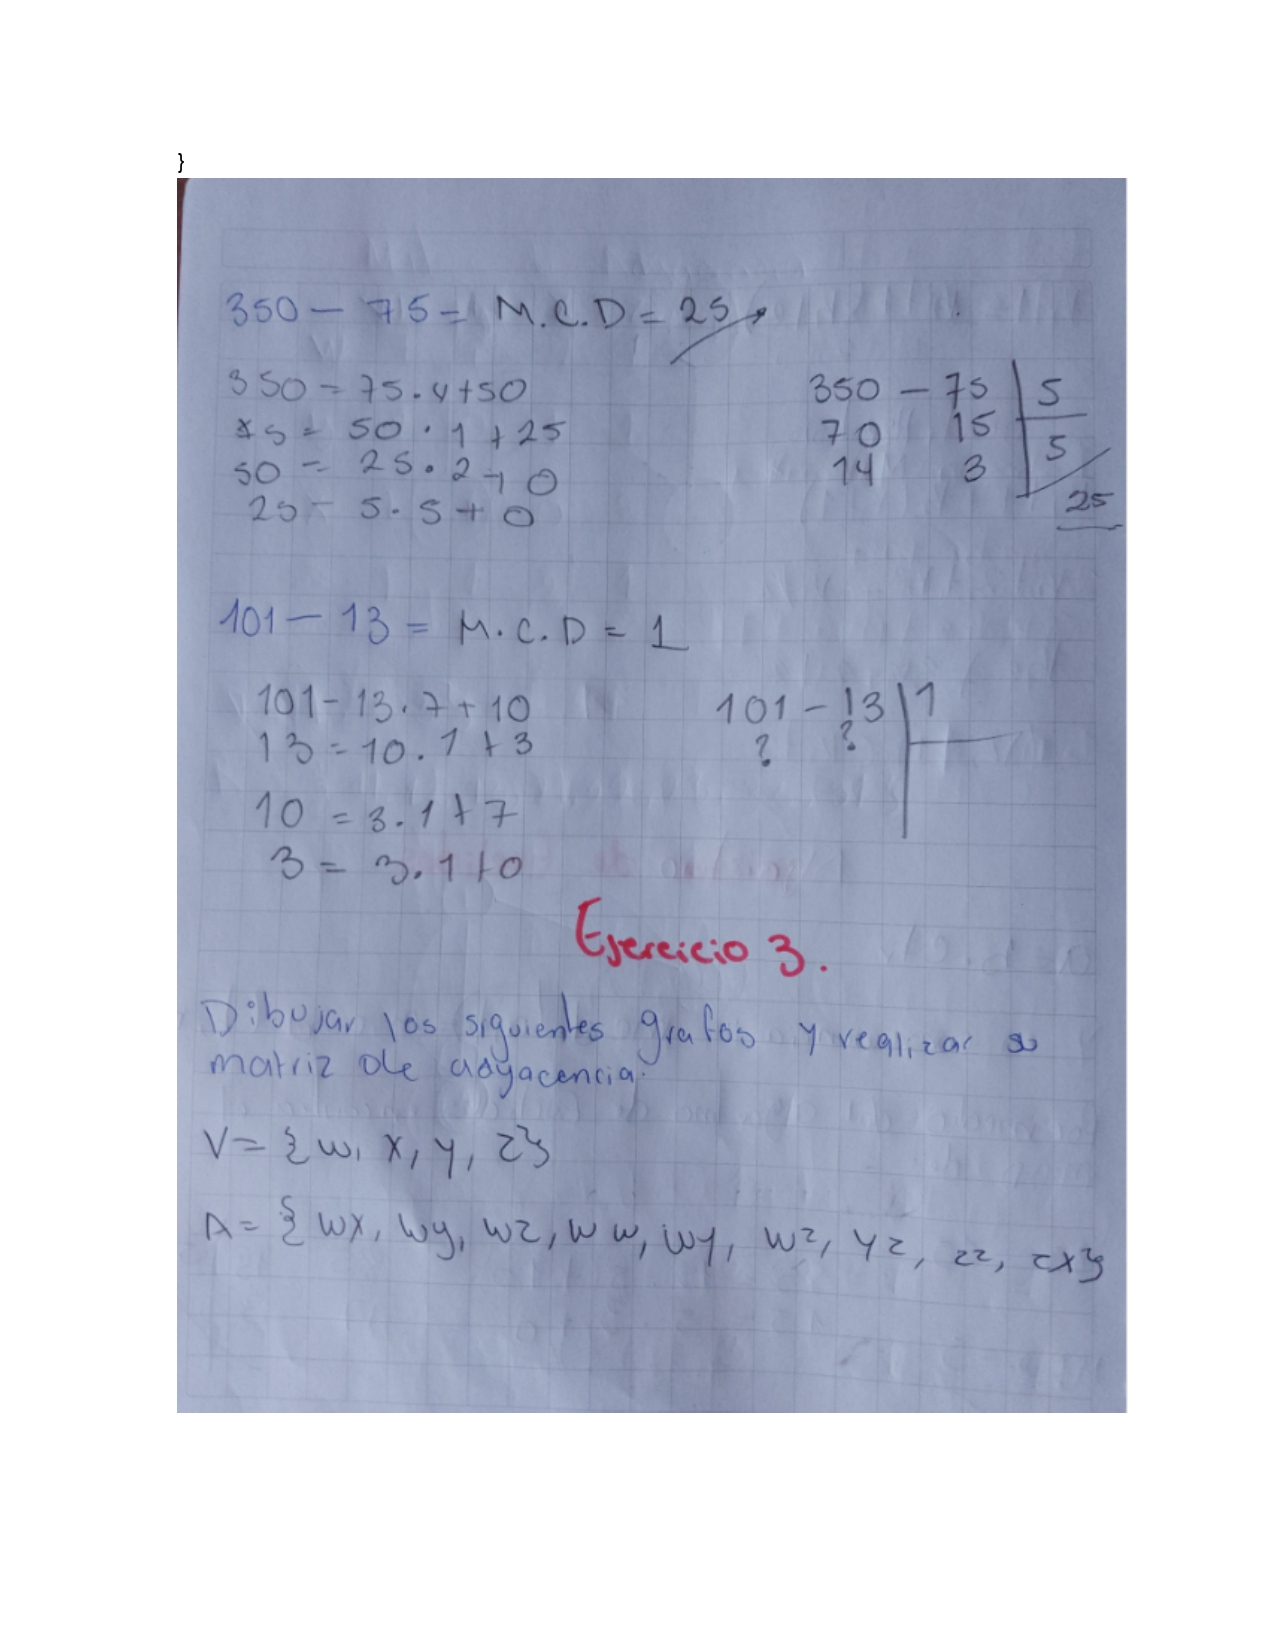 }
350 - 75 = M.C.D = 25
350 = 75 . 4 + 50
75 = 50 . 1 + 25
50 = 25 . 2 + 0
25 = 5 . 5 + 0
350 - 75 | 5
70 15 | 5
14 3
25
101 - 13 = M.C.D = 1
101 - 13 . 7 + 10
13 = 10 . 1 + 3
10 = 3 . 1 + 7
3 = 3 . 1 + 0
101 - 13 | 1
? ?
Ejercicio 3.
Dibujar los siguientes grafos y realizar su
matriz de adyacencia.
V = {w, x, y, z}
A = {wx, wy, wz, ww, wy, wz, yz, zz, zx}